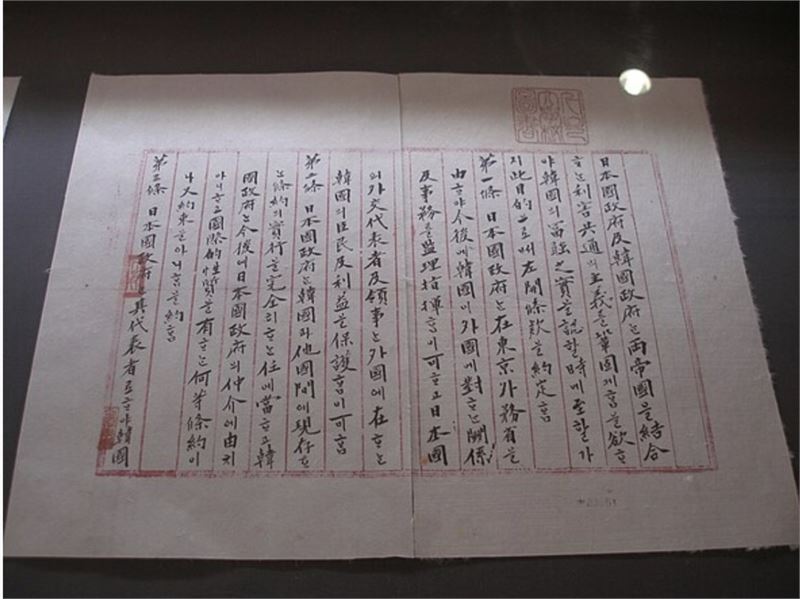 日本國政府及韓國政府는 兩帝國을 結合
ᄒᆞ는 利害共通의 主義를 鞏固케 ᄒᆞᆷ을 欲ᄒᆞ
야 韓國의 富强之實을 認ᄒᆞᆯ 時에 至ᄒᆞᆯ가
지 此目的으로써 左開條款을 約定ᄒᆞᆷ
第一條 日本國政府는 在東京外務省을
由ᄒᆞ야 今後에 韓國이 外國에 對ᄒᆞ는 關係
及事務를 監理指揮ᄒᆞᆷ이 可ᄒᆞ고 日本國
의 外交代表者及領事는 外國에 在ᄒᆞ는
韓國의 臣民及利益을 保護ᄒᆞᆷ이 可ᄒᆞᆷ
第二條 日本國政府는 韓國과 他國間에 現存ᄒᆞ
는 條約의 實行을 完全히 ᄒᆞ는 任에 當ᄒᆞ고 韓
國政府는 今後에 日本國政府의 仲介에 由치
아니ᄒᆞ고 國際的 性質을 有ᄒᆞ는 何等條約이
나 又約束을 아니ᄒᆞᆷ을 約ᄒᆞᆷ
第三條 日本國政府는 其代表者로 ᄒᆞ야 韓國